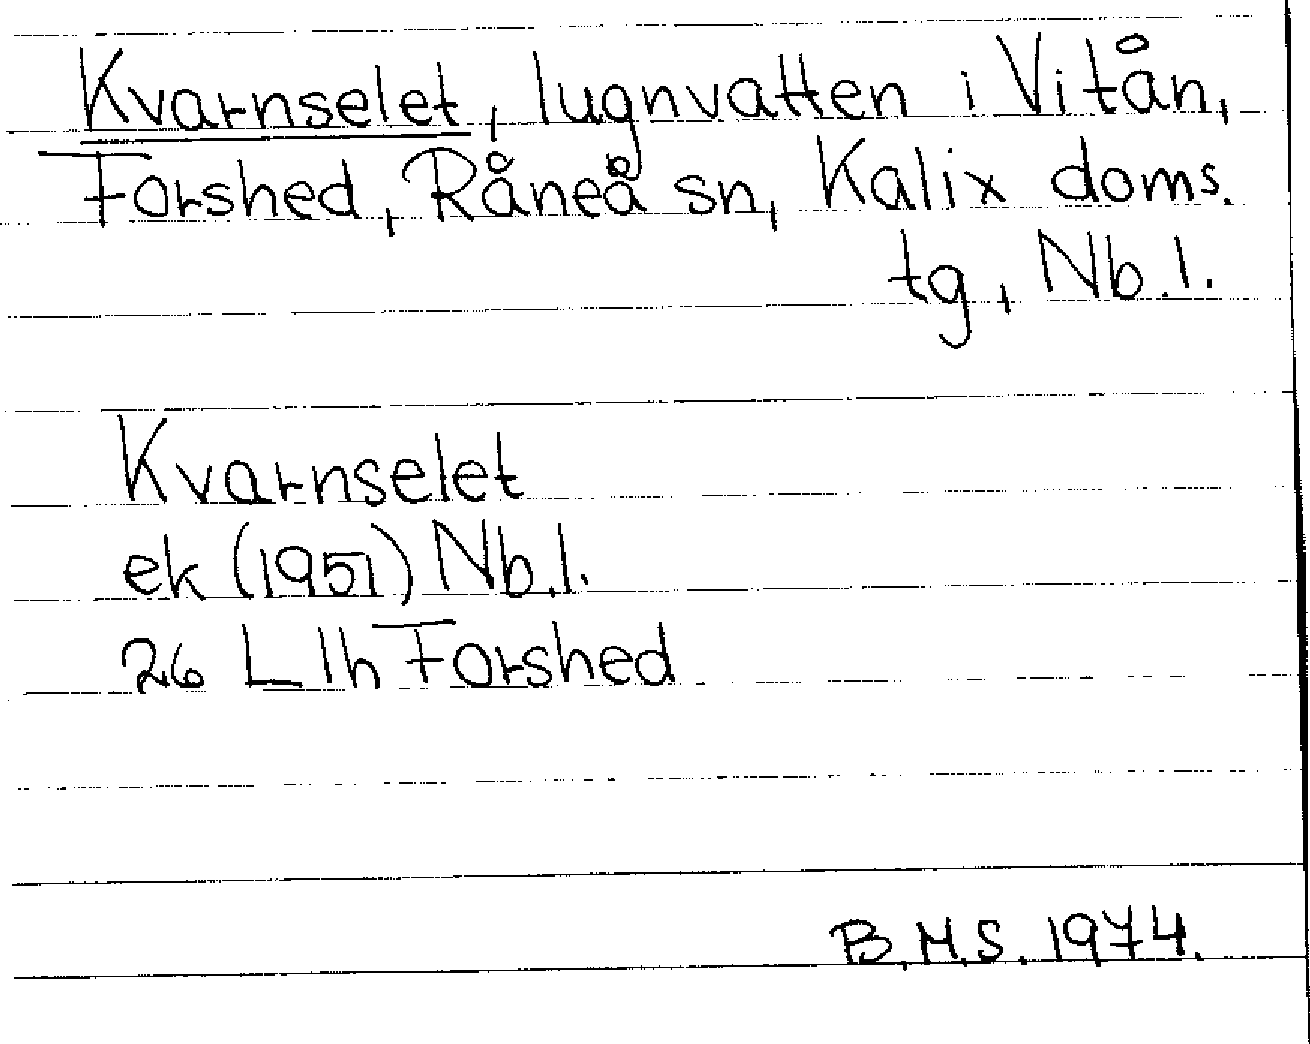 Kvarnselet, lugnvatten i Vitån,
Forshed, Råneå sn, Kalix doms.
tg, Nb.l.
Kvarnselet
ek (1951) Nb.l.
26 L lh Forshed
B.M.S. 1974.